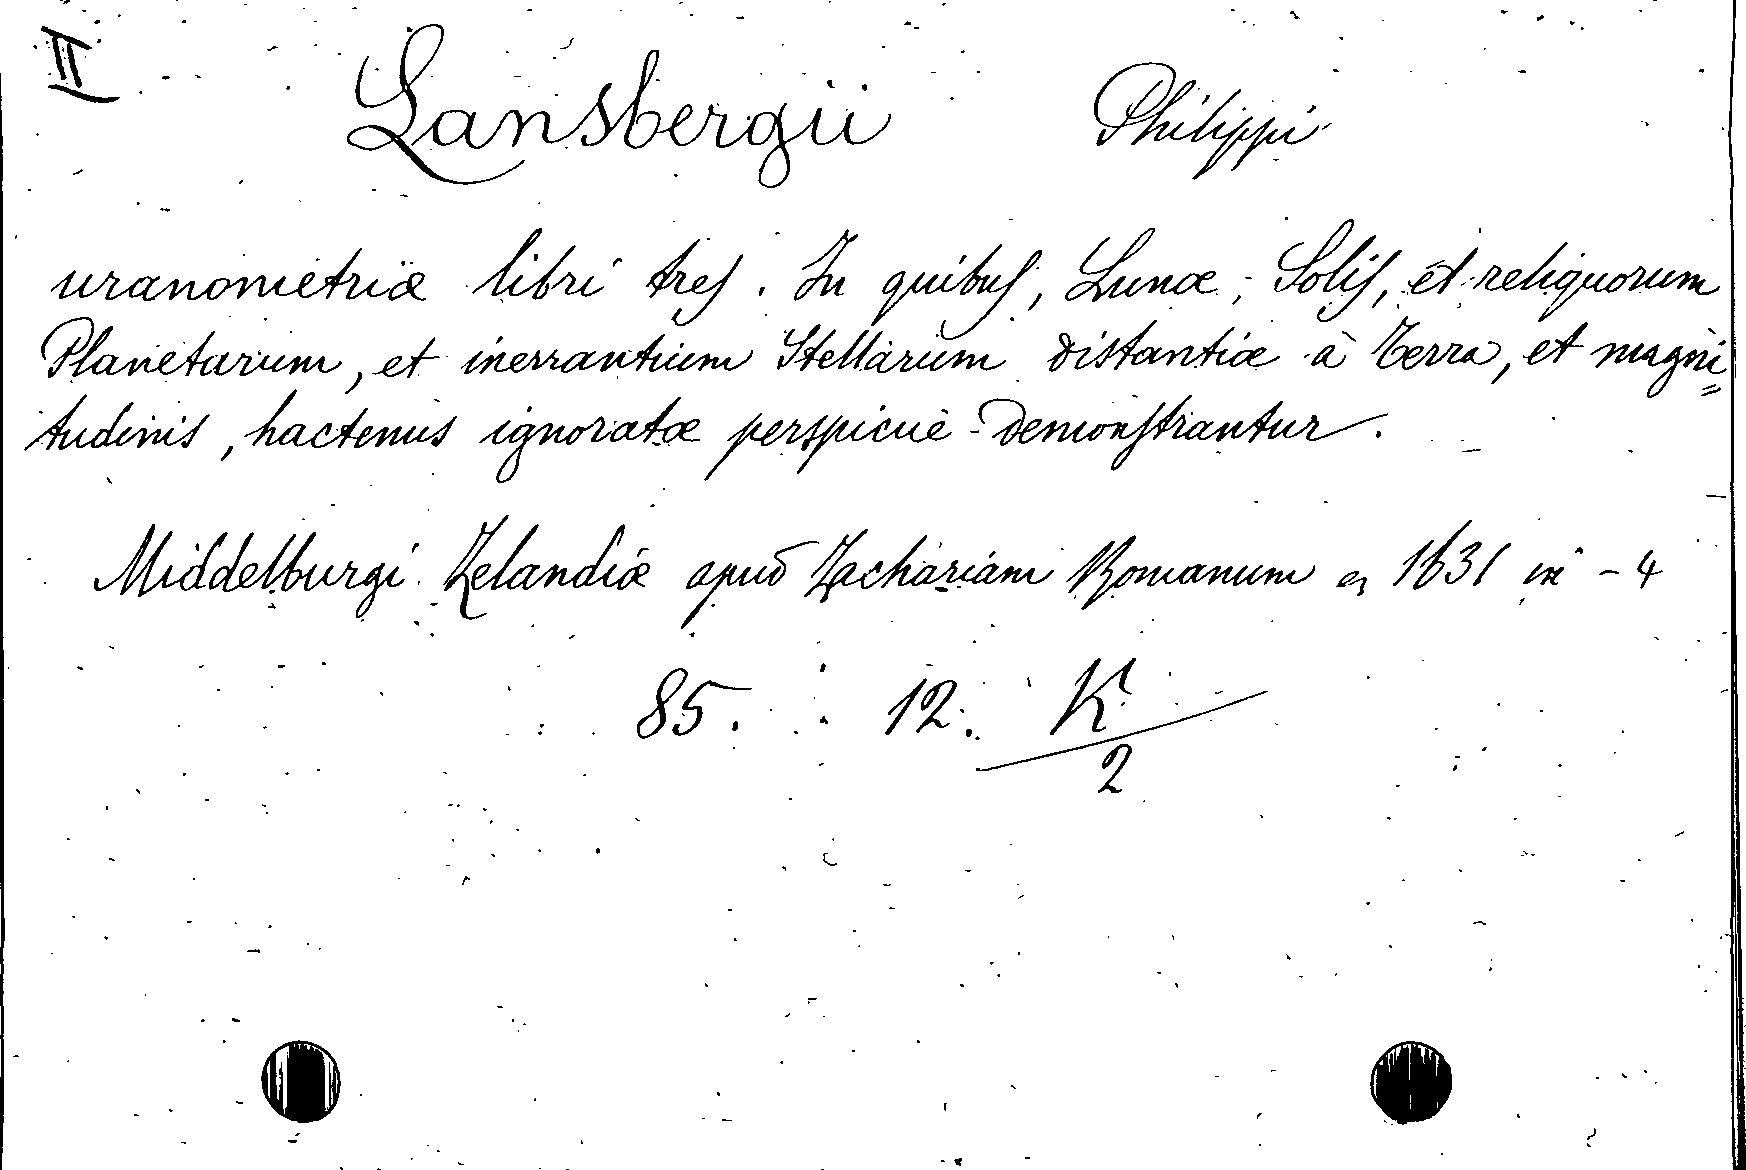 II
Lansbergii Philippi
uranometriæ libri tres. In quibus, Lunæ, Solis, et reliquorum
Planetarum, et inerrantium Stellarum distantiæ à Terra, et magni=
tudinis, hactenus ignoratæ perspicuè demonstrantur.
Middelburgi Zelandiæ apud Zachariam Romanum 1631 in - 4
85. 12. K
2